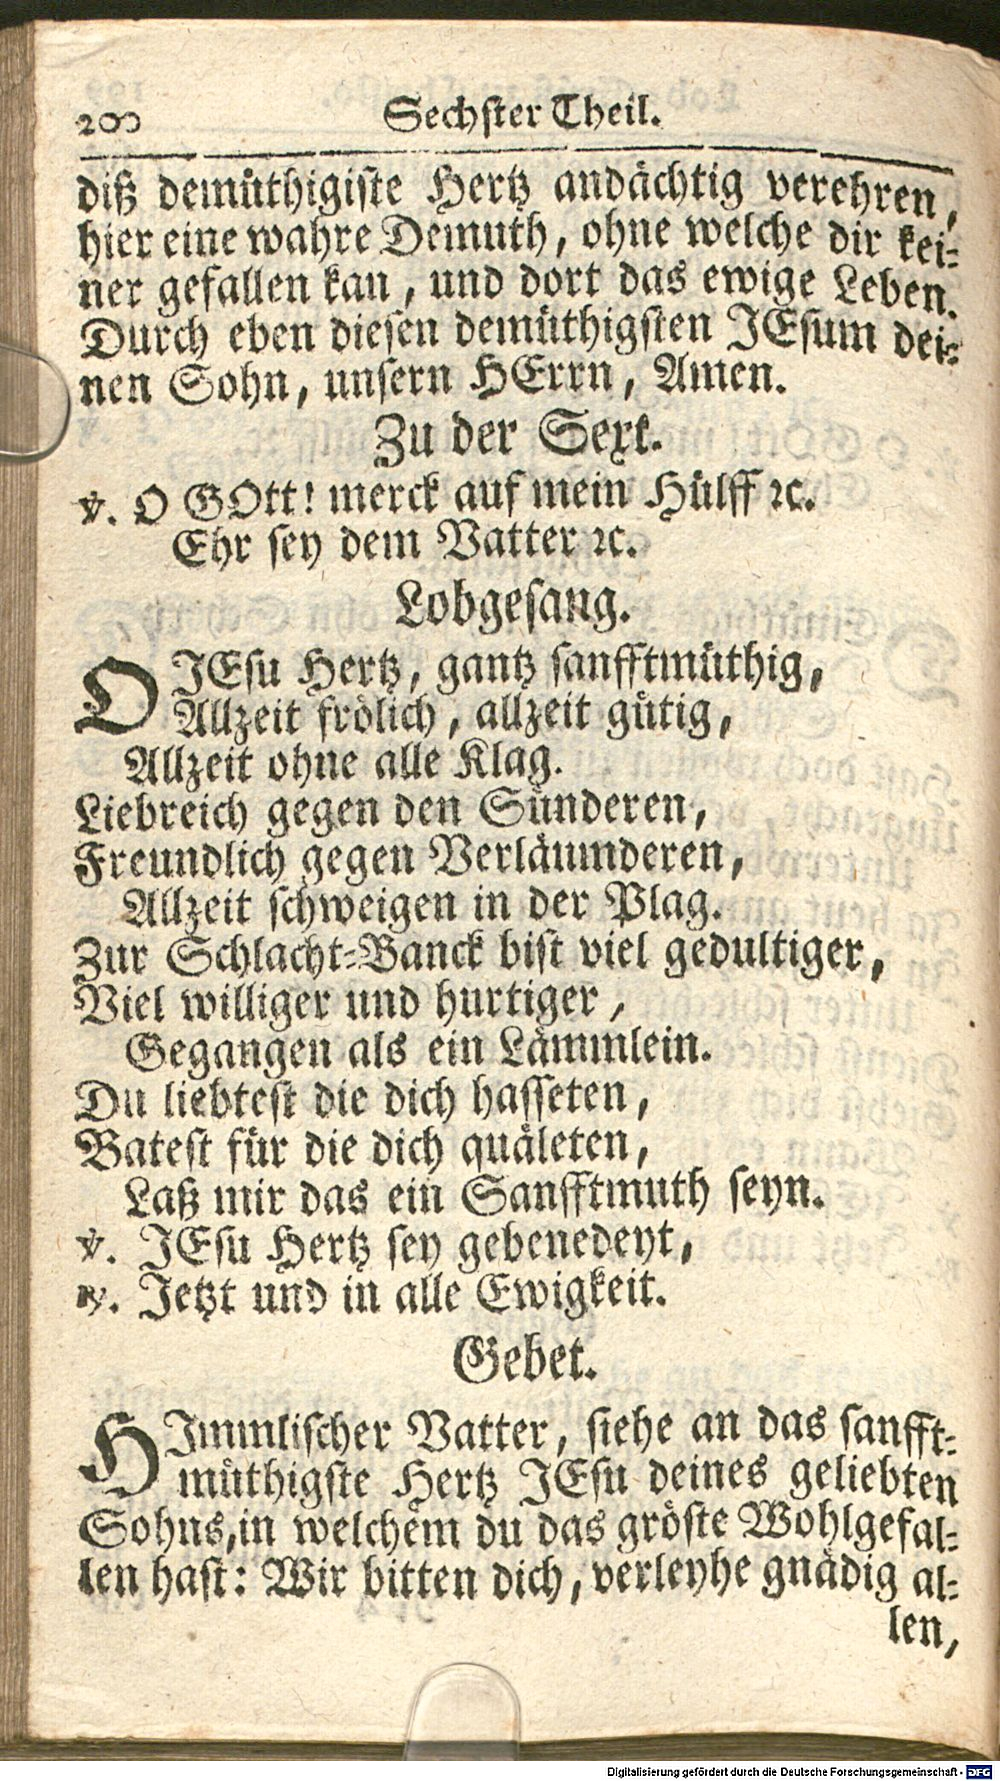 200 Sechster Theil.
diß demüthigiste Hertz andächtig verehren,
hier eine wahre Demuth, ohne welche dir kei-
ner gefallen kan, und dort das ewige Leben.
Durch eben diesen demüthigsten JEsum dei-
nen Sohn, unsern HErrn, Amen.
Zu der Sext.
℣. O GOtt! merck auf mein Hülff ꝛc.
Ehr sey dem Vatter ꝛc.
Lobgesang.
O JEsu Hertz, gantz sanfftmüthig,
Allzeit frölich, allzeit gütig,
Allzeit ohne alle Klag.
Liebreich gegen den Sünderen,
Freundlich gegen Verläumderen,
Allzeit schweigen in der Plag.
Zur Schlacht-Banck bist viel gedultiger,
Viel williger und hurtiger,
Gegangen als ein Lämmlein.
Du liebtest die dich hasseten,
Batest für die dich quäleten,
Laß mir das ein Sanfftmuth seyn.
℣. JEsu Hertz sey gebenedeyt,
℟. Jetzt und in alle Ewigkeit.
Gebet.
HImmlischer Vatter, siehe an das sanfft-
müthigste Hertz JEsu deines geliebten
Sohns, in welchem du das gröste Wohlgefal-
len hast: Wir bitten dich, verleyhe gnädig al-
len,
Digitalisierung gefördert durch die Deutsche Forschungsgemeinschaft - DFG